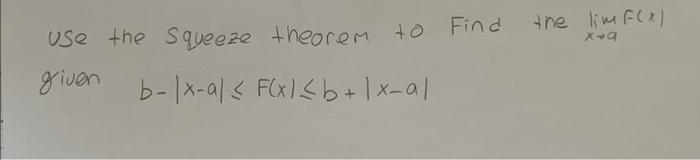 Use the Squeeze theorem to Find the lim F(x)
x→a
given b-|x-a| ≤ F(x) ≤ b + |x-a|